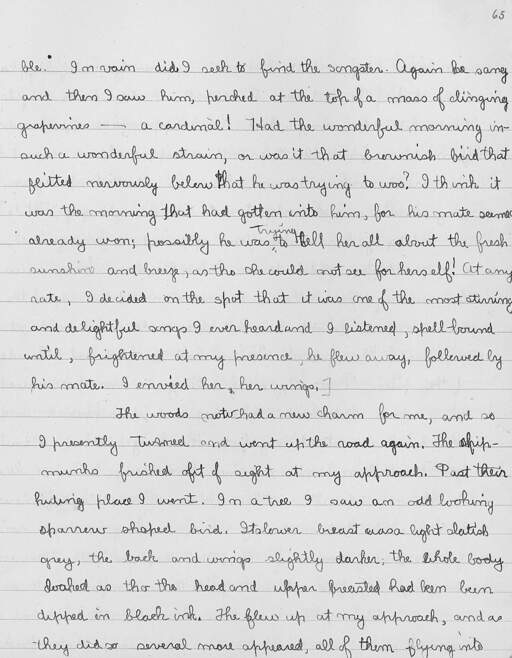 65
ble. In vain did I seek to find the songster. Again he sang
and then I saw him, perched at the top of a mass of clinging
grapevines — a cardinal! Had the wonderful morning in-
such a wonderful strain, or was it that brownish bird that
flitted nervously below that he was trying to woo? I think it
was the morning that had gotten into him, for his mate seemed
already won; possibly he was trying to tell her all about the fresh
sunshine and breeze, as tho she could not see for herself! (At any
rate, I decided on the spot that it was one of the most stirring
and delightful songs I ever heard and I listened, spell-bound
until, frightened at my presence, he flew away, followed by
his mate. I envied her, her wings.]
The woods now had a new charm for me, and so
I presently turned and went up the road again. The chip-
munks frisked out of sight at my approach. Past their
hiding place I went. In a tree I saw an odd looking
sparrow shaped bird. Its lower breast was a light slatish
grey, the back and wings slightly darker; the whole body
looked as tho the head and upper had been been
dipped in black ink. The flew up at my approach, and as
they did so several more appeared, all of them flying into